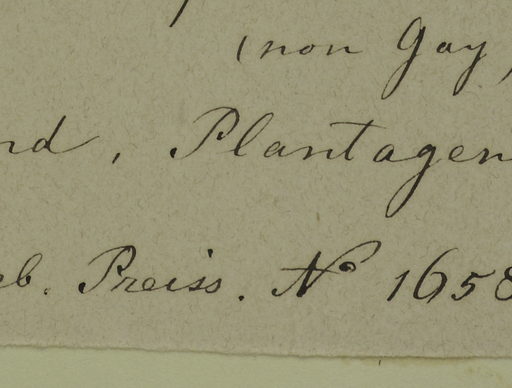 (non Gay)
nd, Plantagen
rb. Preiss. No 1658